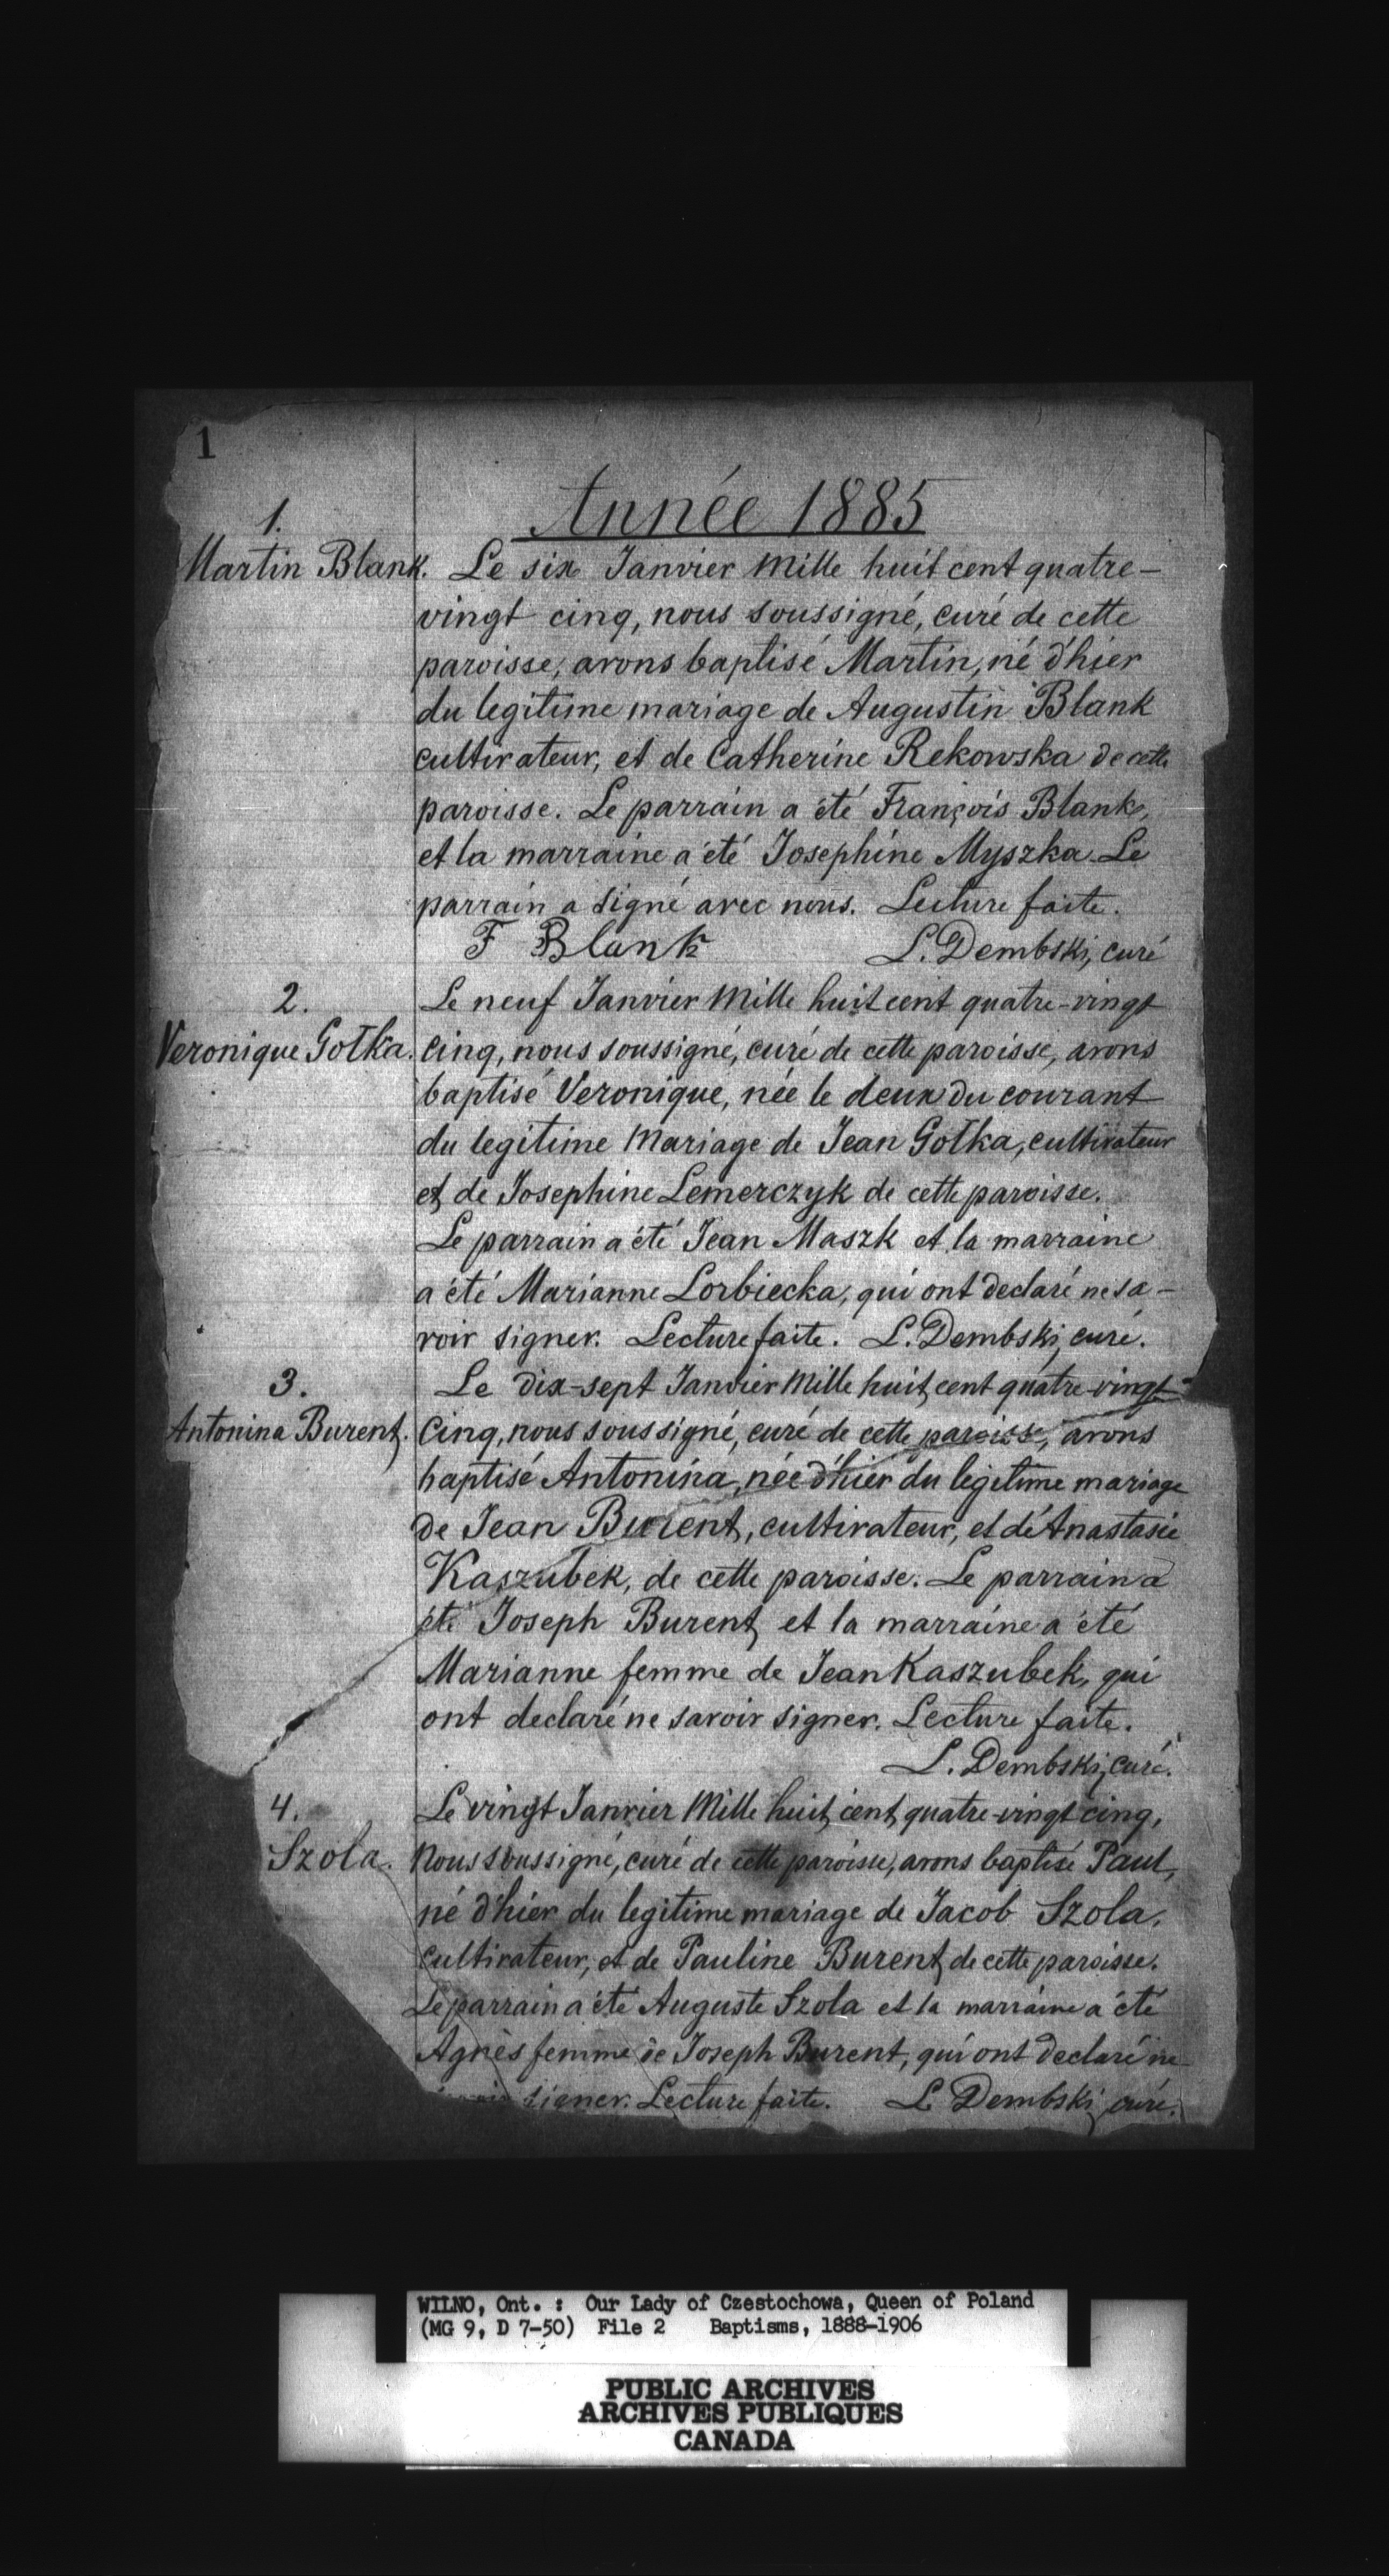 1
Année 1885
1.
Martin Blank. Le six Janvier Mille huit cent quatre-
vingt cinq, nous soussigné, curé de cette
paroisse, avons baptisé Martin, né d'hier
du legitime mariage de Augustin Blank
cultivateur, et de Catherine Rekowska de cette
paroisse. Le parrain a été François Blank,
et la marraine a été Josephine Myszka. Le
parrain a signé avec nous. Lecture faite.
F Blank L. Dembski, curé
2. Le neuf Janvier Mille huit cent quatre-vingt
Veronique Gołka. cinq, nous soussigné, curé de cette paroisse, avons
baptisé Veronique, née le deux du courant
du legitime Mariage de Jean Gołka, cultivateur
et de Josephine Lemerczyk de cette paroisse.
Le parrain a été Jean Maszk et la marraine
a été Marianne Lorbiecka, qui ont declaré ne sa-
voir signer. Lecture faite. L. Dembski, curé.
3. Le dix-sept Janvier Mille huit cent quatre-vingt
Antonina Burent. Cinq, nous soussigné, curé de cette paroisse, avons
baptisé Antonina, née d'hier du legitime mariage
de Jean Burent, cultivateur, et de Anastasie
Kaszubek, de cette paroisse. Le parrain a
été Joseph Burent et la marraine a été
Marianne femme de Jean Kaszubek, qui
ont declaré ne savoir signer. Lecture faite.
L. Dembski, curé.
4. Le vingt Janvier Mille huit cent quatre-vingt cinq,
Szola. Nous soussigné, curé de cette paroisse, avons baptisé Paul,
né d'hier du legitime mariage de Jacob Szola,
cultivateur, et de Pauline Burent de cette paroisse.
Le parrain a été Auguste Szola et la marraine a été
Agnès femme de Joseph Burent, qui ont declaré ne
signer. Lecture faite. L. Dembski, curé.
WILNO, Ont. : Our Lady of Czestochowa, Queen of Poland
(MG 9, D 7-50) File 2 Baptisms, 1888-1906
PUBLIC ARCHIVES
ARCHIVES PUBLIQUES
CANADA